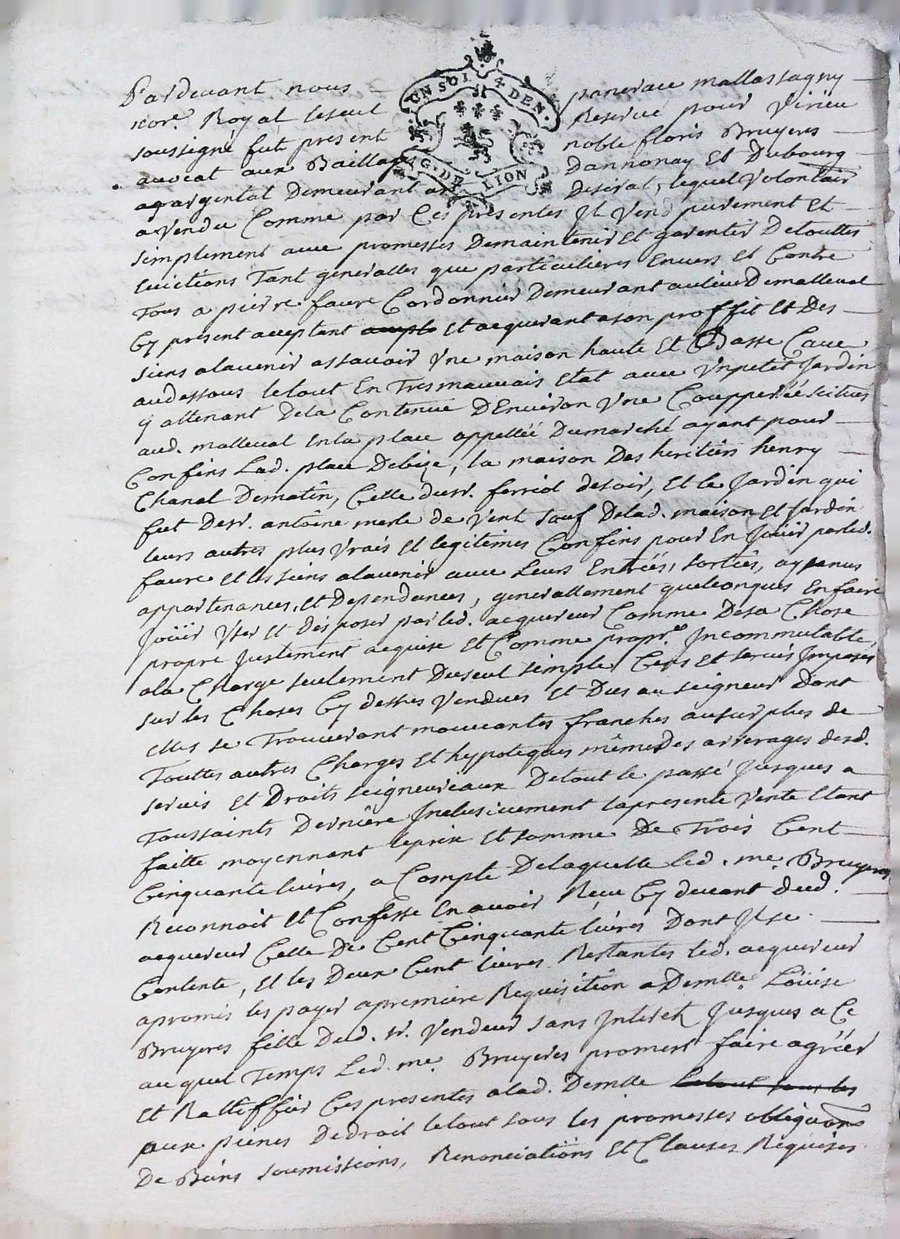 Pardevant nous panerace mallassagny
nore. Royal le seul Reservé pour Virieu
UN SOL 4 DEN.
G. DE LION
soussigné fut present noble floris Bruyeres
avocat aux Bailliages Dannonay Et Dubourg
agargental Demeurant au Deserat, lequel Volontair
a Vendu Comme par Ces presentes Jl Vend purement Et
simplement avec promesses Demaintenir Et garentir Detouttes
Evictions Tant generalles que particulieres Envers Et Contre
Tous a pierre faure Cordonnier Demeurant aulieu Demalleval
Cy present acceptant Et acquerant a son proffit Et Des
siens alavenir assavoir Vne maison haute Et Basse Cave
audessous letout En Tres mauvais Etat avec Vn petit Jardin
y attenant Dela Contenue D'Environ Vne Coupperée scitues
aud. malleval En la place appellée Dumarché ayant pour
Confins Lad. place Debize, la maison Des heritiers henry
Chanal Dematin, Celle dusr. ferriol desoir, Et le Jardin qui
fut Desr. antoine merle de Vent sauf Delad. maison Et Jardin
leurs autres plus Vrais Et legitimes Confins pour En Joüir parled.
faure Et les siens alavenir avec Leurs Entrées, sorties, aysenus
appartenances, Et Dependances, generallement quelconques En faire
Joüir Vser Et Disposer par led. acquereur Comme Desa Chose
propre Justement acquise Et Comme propre. Incommutable,
ala Charge seulement Duseul simple Cens Et servis Imposés
sur les Choses Cy dessus Vendues Et Dus au seigneur Dont
Elles se Trouveront mouvantes franches ausurplus de
Touttes autres Charges Et hypoteques mêmeDes arrerages desd.
servis Et Droits seigneuriaux Detout le passé Jusques a
Toussaints Derniére Inclusivement lapresente Vente Etant
faitte moyennant leprix Et somme De Trois Cent
Cinquante livres, a Compte Delaquelle led. me. Bruyeres
Reconnoit Et Confesse En avoir Reçu Cy devant dud.
acquereur Celle De Cent Cinquante livres Dont Jl se
Contente, Et les Deux Cent livres Restantes led. acquereur
apromis les payer apremiere Requisition a Demlle. Loüise
Bruyeres fille Dud. sr. Vendeur sans Jnterest Jusques a Ce
au quel Temps Led. me. Bruyeres promet faire agréer
Et Rattiffier Ces presentes alad. Demlle letout sous les
aux peines Dedroit letout sous les promesses obligaons
De Biens soumissions, Renonciations Et Clauses Requises